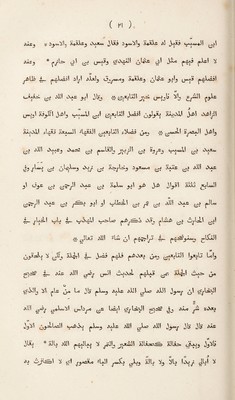 ( ٢١ )
ابن المسيّب فقيل له فعلقمة والاسود فقال سعيد وعلقمة والاسود * وعنه
لا اعلم فيهم مثل ابى عثمان النهدى وقيس بن ابى حازم * وعنه
افضلهم قيس وابو عثمان وعلقمة ومسروق ولعلّه اراد افضلهم فى ظاهر
علوم الشرع والّا فاويس خير التابعين * وقال ابو عبد الله بن خفيف
الزاهد اهل المدينة يقولون افضل التابعين ابن المسيّب واهل الكوفة اويس
واهل البصرة الحسن * ومن فضلاء التابعين الفقهاء السبعة فقهاء المدينة
سعيد بن المسيب وعروة بن الزبير والقاسم بن محمد وعبيد الله بن
عبد الله بن عتبة بن مسعود وخارجة بن زيد وسليمان بن يسار وفى
السابع ثلاثة اقوال هل هو ابو سلمة بن عبد الرحمن بن عوف او
سالم بن عبد الله بن عمر بن الخطاب او ابو بكر بن عبد الرحمن
ابن الحارث بن هشام وقد ذكرهم صاحب المهذب فى باب الخيار فى
النكاح وسنوضّحهم فى تراجمهم ان شاء الله تعالى *
وامّا تابعوا التابعين ومن بعدهم فلهم فضل فى الجملة وان لم يلحقون
من حيث الجملة من قبلهم لحديث انس رضى الله عنه فى صحيح
البخارى ان رسول الله صلى الله عليه وسلم قال ما من عام الا والذى
بعده شرّ منه وفى صحيح البخارى ايضا عن مرداس الاسلمى رضى الله
عنه قال قال رسول الله صلى الله عليه وسلم يذهب الصالحون الاوّل
فالاول ويبقى حفالة كحفالة الشعير والتمر لا يباليهم الله بالة * يقال
لا ابالى زيدًا بالًا ولا بالةً وبِلًى بكسر الباء مقصور اى لا اكترث به